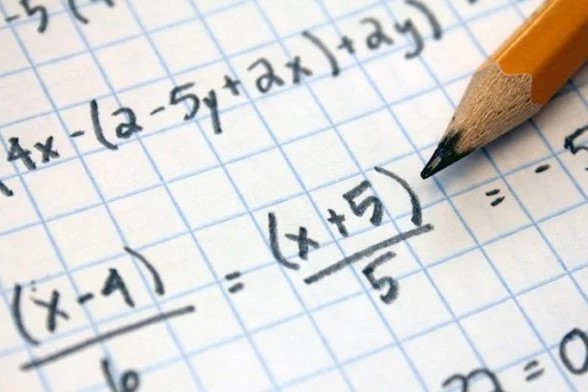 -5(
4x-(2-5y+2x)+2y)
= -5
(x-4)/6 = (x+5)/5
= 0